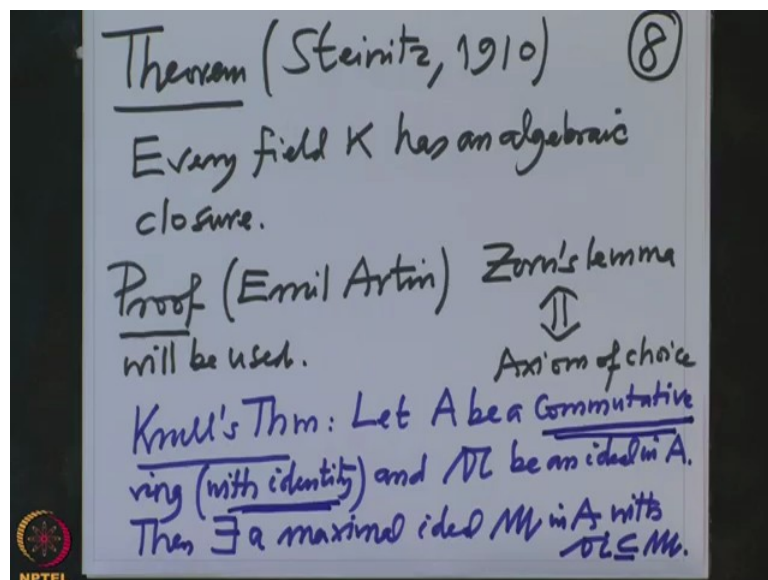 Theorem (Steinitz, 1910) 8
Every field K has an algebraic
closure.
Proof (Emil Artin) Zorn's lemma
⇕
will be used. Axiom of choice
Krull's Thm: Let A be a commutative
ring (with identity) and 𝔞 be an ideal in A.
Then ∃ a maximal ideal 𝔪 in A with
𝔞 ⊆ 𝔪.
NPTEL